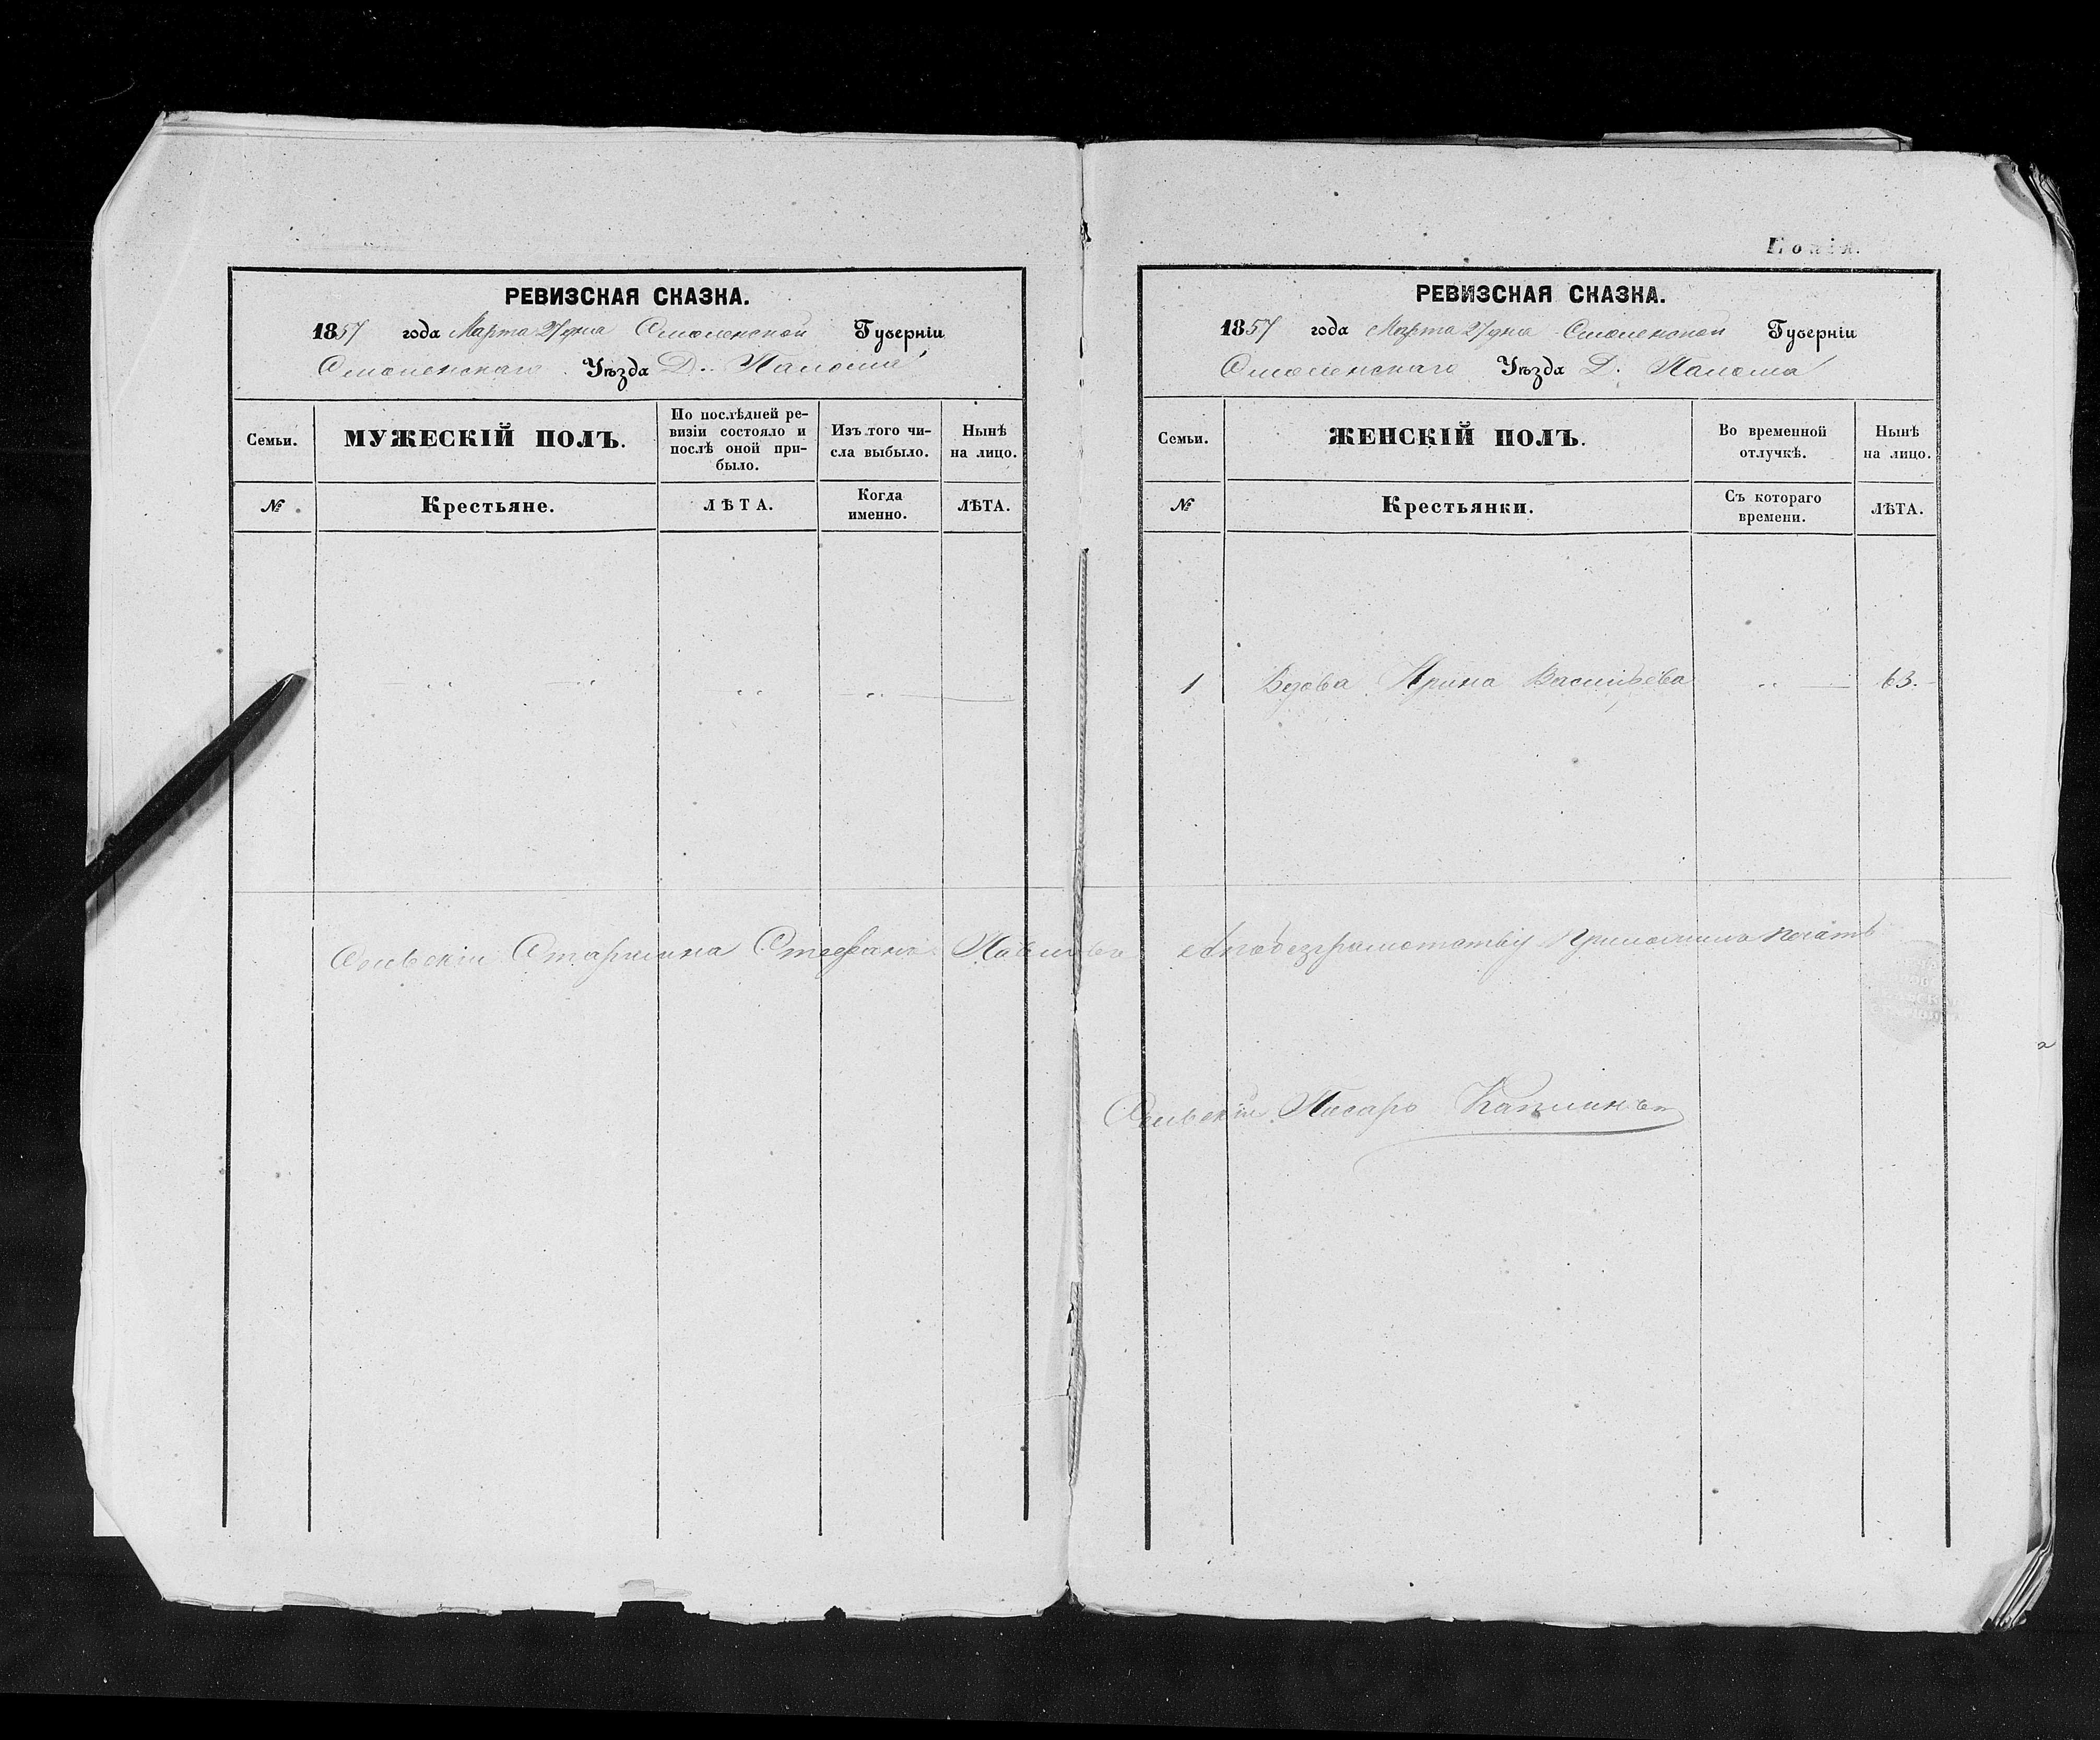 РЕВИЗСКАЯ СКАЗКА.
1857 года Марта 27 дня Смоленской Губерніи
Смоленскаго Уѣзда Д.
Семьи.
МУЖЕСКІЙ ПОЛЪ.
По послѣдней ре-
визіи состояло и
послѣ оной при-
было.
Изъ того чи-
сла выбыло.
Нынѣ
на лицо.
№
Крестьяне.
ЛѢТА.
Когда
именно.
ЛѢТА.
Сельскій Старшина Стефанъ Павловъ
Копія.
РЕВИЗСКАЯ СКАЗКА.
1857 года Марта 27 дня Смоленской Губерніи
Смоленскаго Уѣзда Д.
Семьи.
ЖЕНСКІЙ ПОЛЪ.
Во временной
отлучкѣ.
Нынѣ
на лицо.
№
Крестьянки.
Съ котораго
времени.
ЛѢТА.
1 Вдова Ирина Васильева 63.
а по безграмотству приложилъ печать
Сельскій Писарь